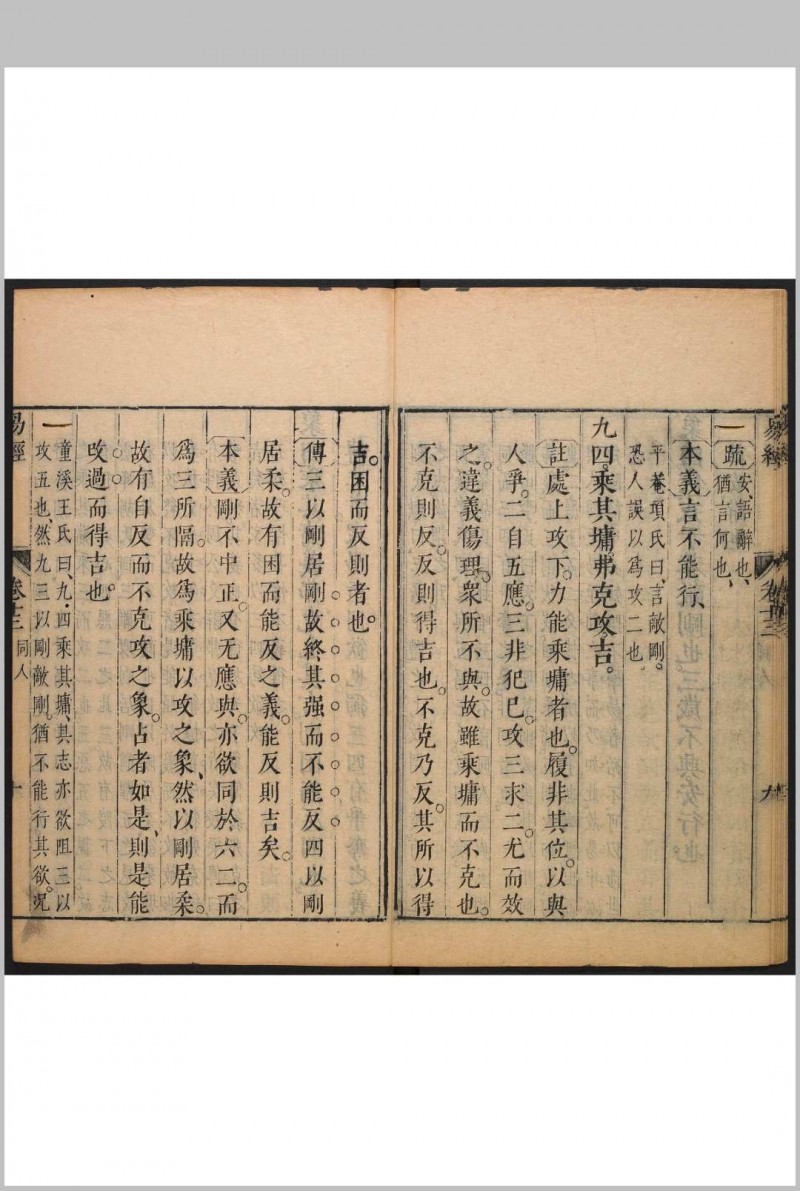 易經
卷十三
九
疏 安、語辭也、
猶言何也、
本義言不能行、
平菴項氏曰、言敵剛。
恐人誤以爲攻二也、
九四乘其墉弗克攻吉。
註處上攻下。力能乘墉者也。履非其位。以與
人爭。二自五應。三非犯巳。攻三求二。尤而效
之。違義傷理。衆所不與。故雖乘墉而不克也。
不克則反。反則得吉也。不克乃反。其所以得
吉。困而反則者也。
傳三以剛居剛。故終其强而不能反。四以剛
居柔。故有困而能反之義。能反則吉矣。
本義剛不中正。又无應與。亦欲同於六二。而
爲三所隔。故爲乘墉以攻之象、然以剛居柔。
故有自反而不克攻之象。占者如是、則是能
攺過而得吉也。
童溪王氏曰、九四乘其墉、其志亦欲阻三以
攻五也、然九三以剛敵剛。猶不能行其欲。况
易經
卷十三 同人
十